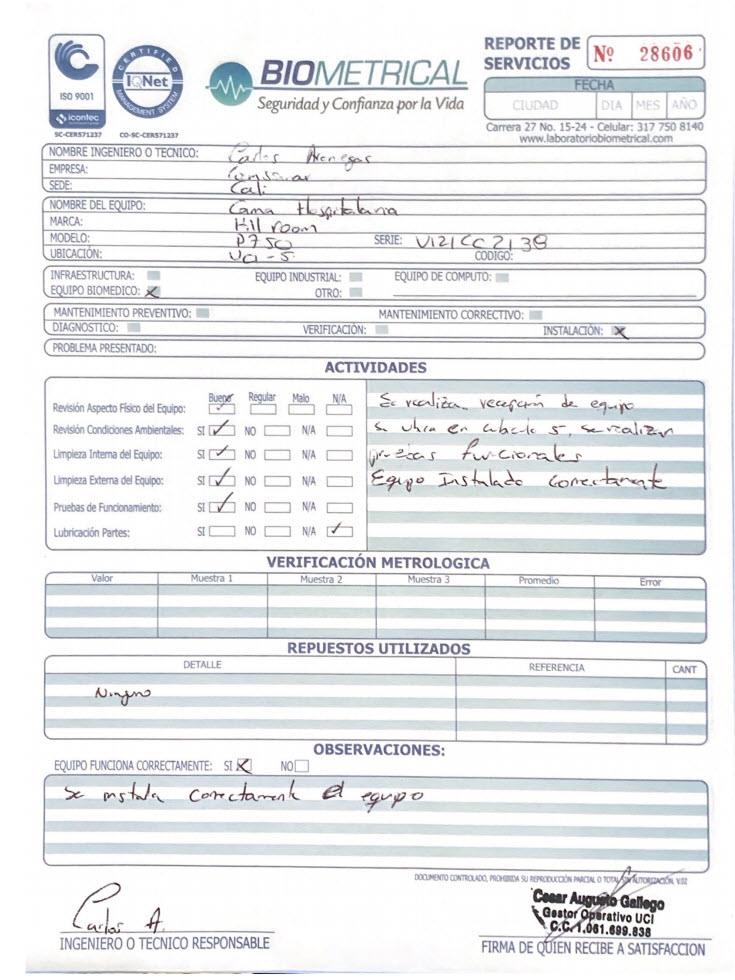 ISO 9001
icontec
SC-CER571237
CERTIFIED
IQNet
MANAGEMENT SYSTEM
CO-SC-CER571237
BIOMETRICAL
Seguridad y Confianza por la Vida
REPORTE DE SERVICIOS
Nº 28606
FECHA
CIUDAD DIA MES AÑO
Carrera 27 No. 15-24 - Celular: 317 750 8140
www.laboratoriobiometrical.com
NOMBRE INGENIERO O TECNICO: Carlos
EMPRESA:
SEDE: Cali
NOMBRE DEL EQUIPO: Cama Hospitalaria
MARCA: Hill room
MODELO: P750 SERIE: V121CC2138
UBICACIÓN: UCI-5 CODIGO:
INFRAESTRUCTURA: EQUIPO INDUSTRIAL: EQUIPO DE COMPUTO:
EQUIPO BIOMEDICO: X OTRO:
MANTENIMIENTO PREVENTIVO: MANTENIMIENTO CORRECTIVO:
DIAGNOSTICO: VERIFICACIÓN: INSTALACIÓN: X
PROBLEMA PRESENTADO:
ACTIVIDADES
Bueno Regular Malo N/A
Revisión Aspecto Físico del Equipo: ✓
Revisión Condiciones Ambientales: SI ✓ NO N/A
Limpieza Interna del Equipo: SI ✓ NO N/A
Limpieza Externa del Equipo: SI ✓ NO N/A
Pruebas de Funcionamiento: SI ✓ NO N/A
Lubricación Partes: SI NO N/A ✓
Se realiza recepción de equipo
se ubica en cubiculo 5, se realizan
pruebas funcionales
Equipo Instalado Correctamente
VERIFICACIÓN METROLOGICA
Valor Muestra 1 Muestra 2 Muestra 3 Promedio Error
REPUESTOS UTILIZADOS
DETALLE REFERENCIA CANT
Ninguno
OBSERVACIONES:
EQUIPO FUNCIONA CORRECTAMENTE: SI X NO
Se instala correctamente el equipo
DOCUMENTO CONTROLADO, PROHIBIDA SU REPRODUCCIÓN PARCIAL O TOTAL SIN AUTORIZACIÓN. V.02
Carlos A.
INGENIERO O TECNICO RESPONSABLE
Cesar Augusto Gallego
Gestor Operativo UCI
C.C. 1.061.699.838
FIRMA DE QUIEN RECIBE A SATISFACCION